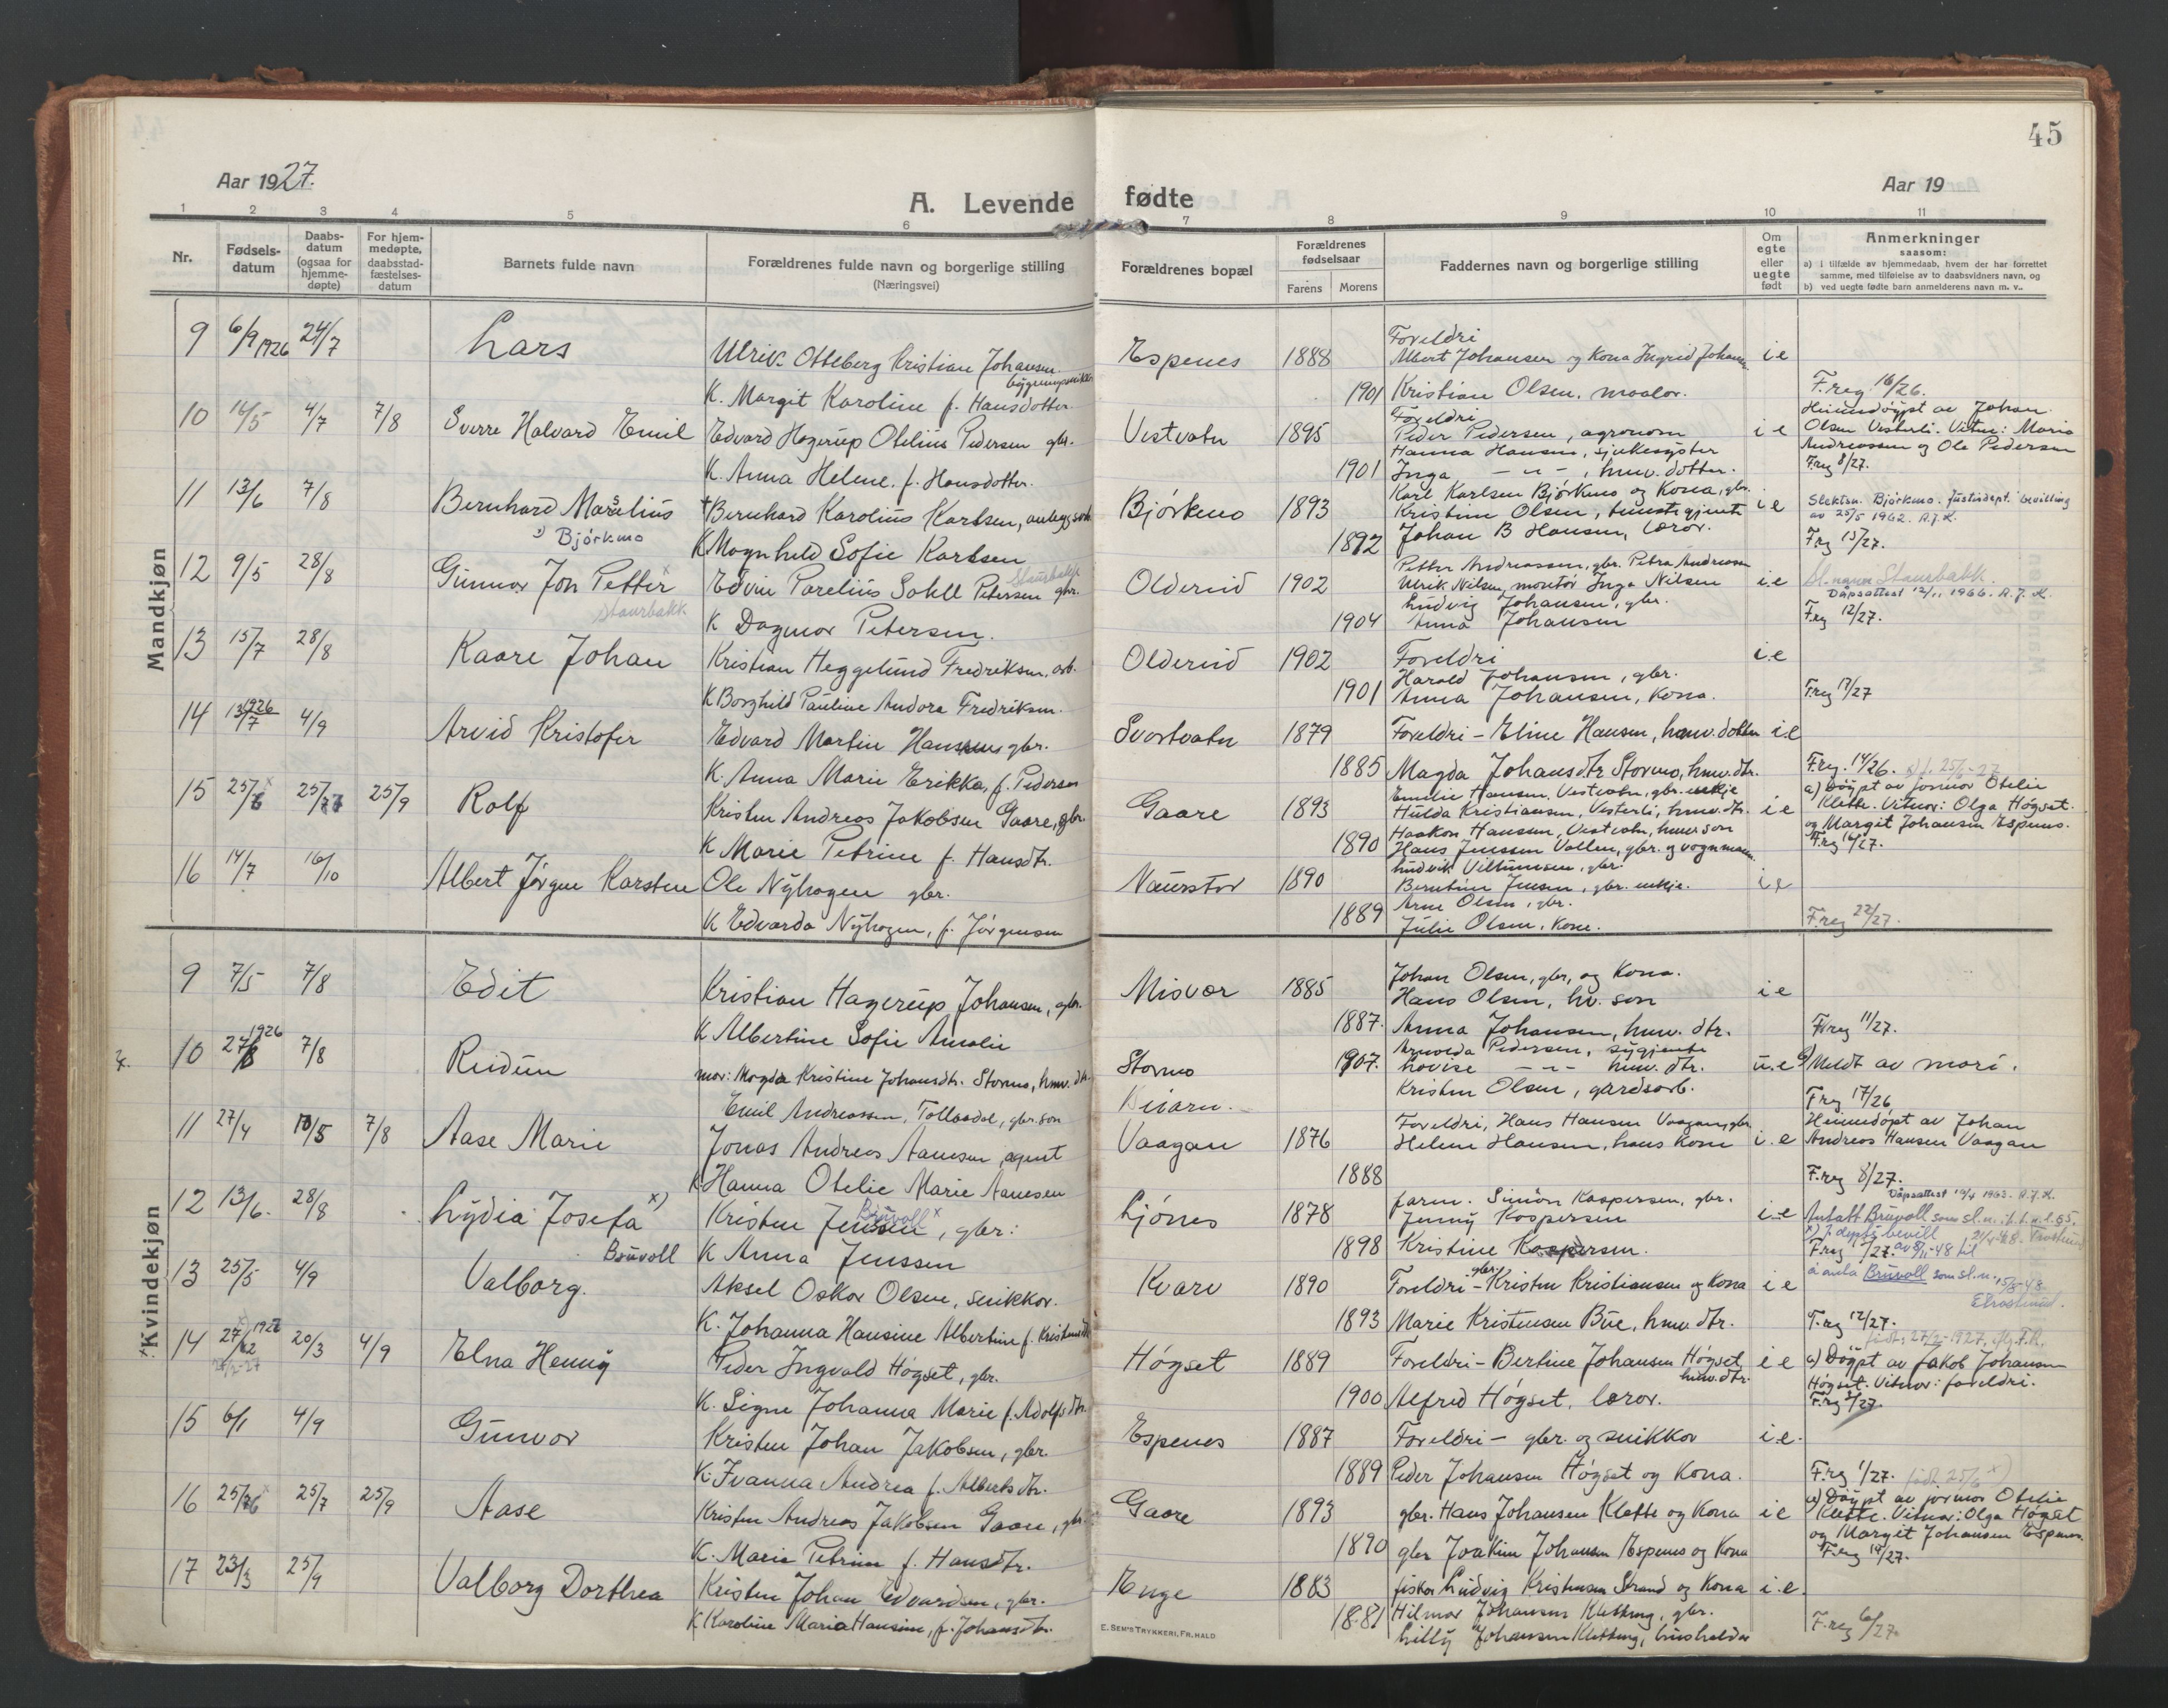 45
Aar 1927.
A. Levende fødte
Aar 19
1 2 3 4 5 6 7 8 9 10 11
Nr.
Fødsels-datum
Daabs-datum (ogsaa for hjemme-døpte)
For hjem-medøpte, daabsstad-fæstelses-datum
Barnets fulde navn
Forældrenes fulde navn og borgerlige stilling
(Næringsvei)
Forældrenes bopæl
Forældrenes fødselsaar
Farens Morens
Faddernes navn og borgerlige stilling
Om egte eller uegte født
Anmerkninger
saasom:
a) i tilfælde av hjemmedaab, hvem der har forrettet
samme, med tilføielse av to daabsvidners navn, og
b) ved uegte fødte barn anmelderens navn m. v..
Mandkjøn
9 6/9 1926 24/7 Lars
Ulrik Otteberg Kristian Johansen
K. Margit Karoline f. Hansdotter.
Espenes 1888 1901
Foreldri
Albert Johansen og Kona Ingrid Johansen
Kristian Olsen, maalar.
i e
F.reg 16/26.
10 16/5 4/7 7/8 Sverre Halvard Emil
Edvard Hagerup Otelius Pedersen gbr.
K. Anna Helene, f. Hansdotter.
Vestvatn 1895 1901
Foreldri
Peder Pedersen, agronom
Hanna Hansen, sjukesyster
Inga - " - , hmv. dotter.
i e
Heimdøypt av Johan
Olsen Vesterli. Vitne: Maria
Andreassen og Ole Pedersen
F.reg 8/27.
11 13/6 7/8 Bernhard Marselius
x) Bjørkmo
+Bernhard Karolius Karlsen, anleggsarb
K Magnhild Sofie Karlsen
Bjørkmo 1893 1892
Karl Karlsen Bjørkmo og Kona, gbr.
Kristine Olsen, tenestegjente
Johan B Hansen, lærar.
i e
Slektsn. Bjørkmo. Justisdept. bevilling
av 25/5 1962. R.J.K.
F.reg 13/27.
12 9/5 28/8 Gunnar Jon Petter x
Staurbakk
Edvin Parelius Soldl Petersen gbr.
Staurbakk
K Dagmar Petersen.
Oldereid 1902 1904
Petter Andreassen, gbr. Petra Andreassen
Ulrik Nilsen, montør Inga Nilsen
Ludvig Johansen, gbr.
Anna Johansen
i e
Sl.navn Staurbakk.
Dåpsattest 12/11 1966. R.J.K.
F.reg 12/27.
13 15/7 28/8 Kaare Johan
Kristian Heggelund Fredriksen, arb.
K Borghild Pauline Andora Fredriksen.
Oldereid 1902 1901
Foreldri
Harald Johansen, gbr.
Anna Johansen, Kona.
i.e
F.reg 17/27
14 13/7 1926 4/9 Arvid Kristofer
Edvard Martin Hansen gbr.
K. Anna Marie Erikka, f. Pedersen
Svartvatn 1879 1885
Foreldri - Eline Hansen, hmv. dotter
Magda Johansdtr Stormo, hmv. dtr.
i.e
F.reg. 14/26.
15 25/6 x 25/7 25/9 Rolf
Kristen Andreas Jakobsen Gaare, gbr.
K Marie Petrine f. Hansdtr.
Gaare 1893 1890
Emelie Hansen, Vestvatn, gbr. enkje
Hulda Kristiansen, Vesterli, hmv. dtr.
Haakon Hansen, Vestvatn, hmv son
Hans Jenssen Vollen, gbr. og vognmann.
i e
x) f. 25/6-27
a) Døypt av jormor Otelie
Klette. Vitnor: Olga Høgset.
og Margit Johansen Espenes.
F.reg 16/27.
16 14/7 16/10 Albert Jørgen Karsten
Ole Nyhagen gbr.
K Edvarda Nyhagen, f. Jørgensen
Naurstad 1890 1889
Ludvik Villumsen, gbr.
Berntine Jensen, gbr. enkje.
Arne Olsen, gbr.
Julie Olsen, Kona.
i e
F.reg 22/27.
Kvindekjøn
9 7/5 7/8 Edit
Kristian Hagerup Johansen, gbr.
K Albertine Sofie Amalie
Misvær 1885 1887.
Johan Olsen, gbr, og Kona.
Hans Olsen, hv. son
Anna Johansen, hmv. dtr.
i e
F.reg 11/27.
10 27/8 1926 7/8 Reidun
mor: Magda Kristine Johansdtr. Stormo, hmv. dtr.
Emil Andreassen, Tollaadal, gbr. son
Stormo 1907.
Beiarn.
Arnolda Pedersen, sygjente
Lovise - " - hmv. dtr.
Kristen Olsen, gardsarb.
u.e
b) Meldt av mori.
F.reg 17/26
11 27/4 10/5 7/8 Aase Marie
Jonas Andreas Aanesen, agent
K Hanna Otelie Marie Aanesen
Vaagan 1876 1888
Foreldri, Hans Hansen Vaagan, gbr
Helene Hansen, hans kone
i.e
Heimdøpt av Johan
Andreas Hansen Vaagan
F.reg 8/27.
12 13/6. 28/8 Lydia Josefa x)
Bruvoll
Kristen Jensen, gbr.
Bruvoll x
K Anna Jenssen
Ljønes 1878 1898
farm. Simon Kaspersen, gbr.
Jenny Kaspersen
Kristine Kaspersen.
i.e
Dåpsattest 10/4 1963. R.J.K.
Antatt Bruvoll som sl.n.
å anta Bruvoll som sl.n.
13 25/5 4/9 Valborg.
Aksel Oskar Olsen, snikkar.
K. Johanna Hansine Albertine f. Kristensdtr
Kvarv 1890 1893
Foreldri - gbr. Kristen Kristiansen og Kona
Marie Kristensen Bue, hmv. dtr.
i e
F.reg 12/27.
14 27/12 1926 20/3 4/9 Elna Henny
27/2-27
Peder Ingvald Høgset, gbr.
K. Signe Johanna Marie f. Adolfsdtr.
Høgset 1889 1900
Foreldri - Bertine Johansen Høgset, hmv. dtr.
Alfred Høgset, lærar.
i e
født 27/2-1927, iflg. F.R.
a) Døypt av Jakob Johansen
Høgset. Vitnor: foreldri.
F.reg 5/27.
15 6/1 4/9 Gunvor
Kristen Johan Jakobsen, gbr.
K. Ivanna Andrea f. Albertsdtr.
Espenes 1887 1889
Foreldri - gbr. og snikkar
Peder Johansen Høgset og Kona.
i.e.
F.reg 1/27.
16 25/6 x 25/7 25/9 Aase
Kristen Andreas Jakobsen Gaare, gbr.
K. Marie Petrine f. Hansdtr.
Gaare 1893 1890
gbr. Hans Johansen Klette og Kona
gbr Joakim Johansen Espenes og Kona
i e
født 25/6 x)
a) Døypt av jormor Otelie
Klette. Vitnor: Olga Høgset
og Margit Johansen Espenes.
F.reg 14/27.
17 23/3 25/9 Valborg Dorthea
Kristen Johan Edvardsen, gbr.
K Karoline Maria Hansine, f. Johansdtr.
Enge 1883 1881
fiskar Ludvig Kristensen Strand og Kona
Hilmar Johansen Kletteng, gbr.
Lilly Johansen Kletteng, husholder
i.e.
F.reg 6/27.
E. SEM'S TRYKKERI, FR.HALD